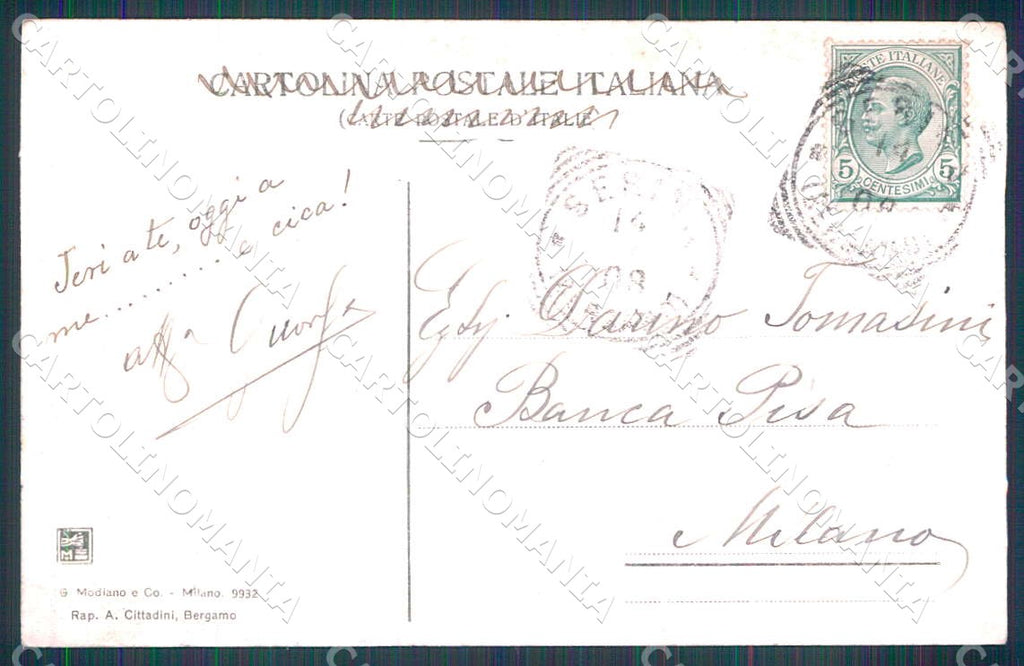 CARTOLINA POSTALE ITALIANA
(CARTE POSTALE D'ITALIE)
POSTE ITALIANE
5 5
CENTESIMI
14
08
Ieri a te, oggi a
me.......... e cica!
aff.a
Egg. Darino Tomasini
Banca Pisa
Milano
G. Modiano e Co. - Milano. 9932
Rap. A. Cittadini, Bergamo
CARTOLINOMANIA